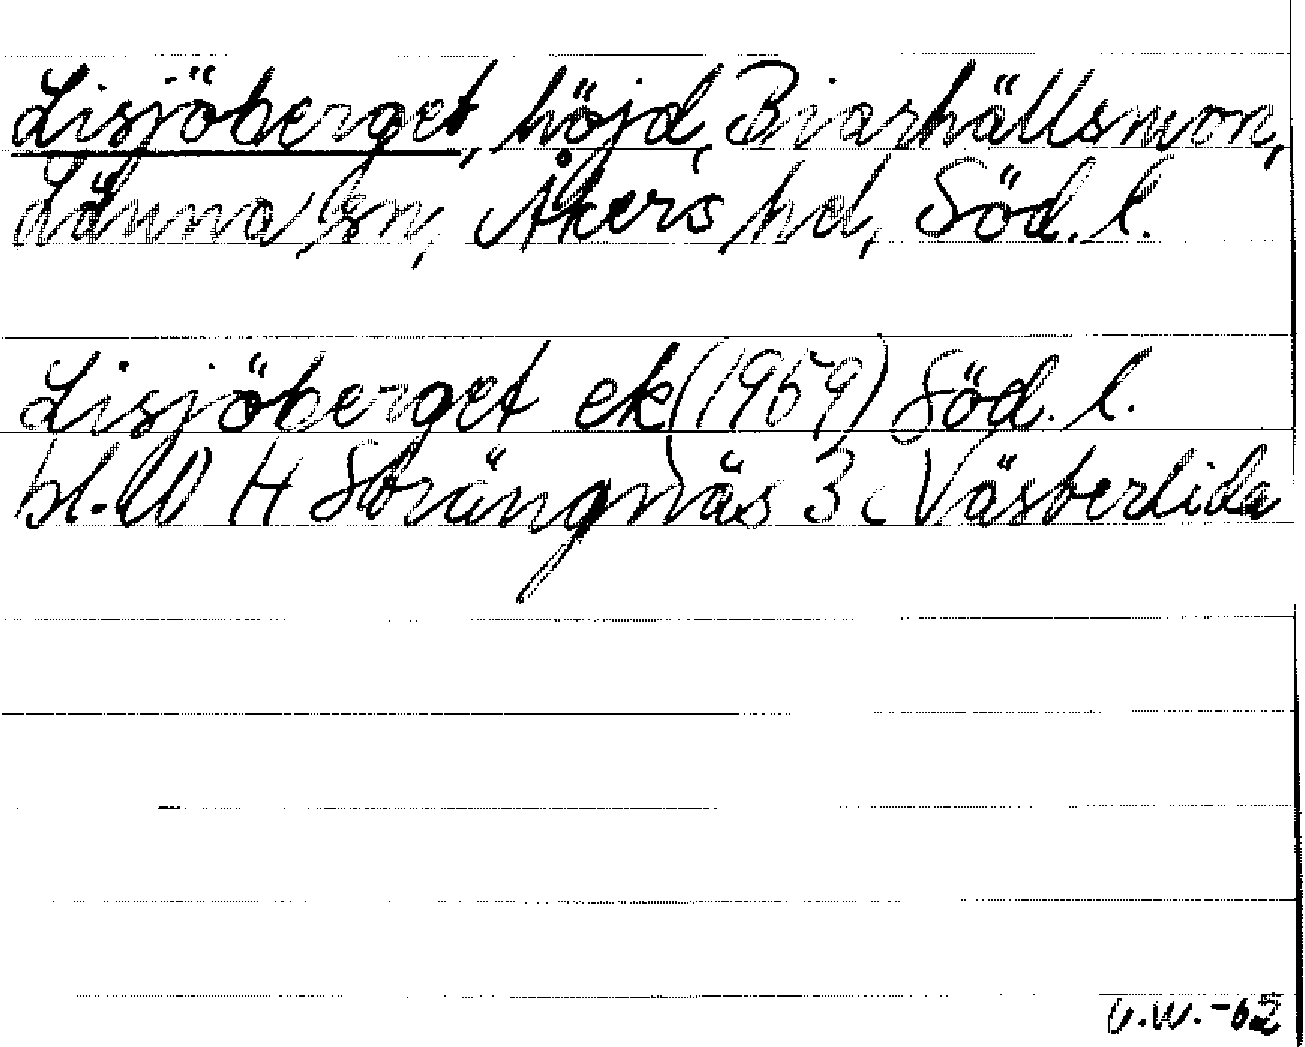 Lisjöberget, höjd, Briarhällsmon,
Länna sn, Åkers hd, Söd. l.
Lisjöberget ek (1959) Söd. l.
bl. 10 H Strängnäs 3 c Västerlida
U.W. -62